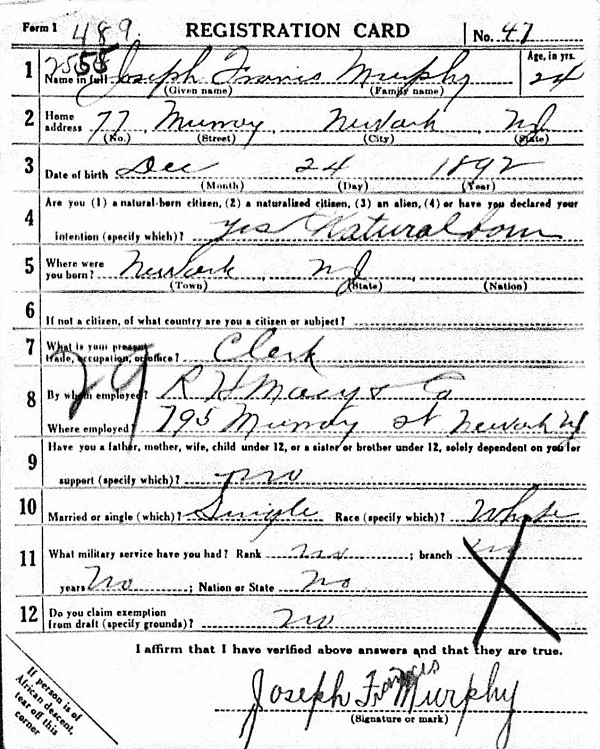 Form 1 489. REGISTRATION CARD No. 47
1 2555 Name in full Joseph Francis Murphy Age, in yrs. 24
(Given name) (Family name)
2 Home address 77 Murray Newark NJ
(No.) (Street) (City) (State)
3 Date of birth Dec 24 1892
(Month) (Day) (Year)
4 Are you (1) a natural-born citizen, (2) a naturalized citizen, (3) an alien, (4) or have you declared your
intention (specify which)? yes Natural born
5 Where were you born? Newark NJ
(Town) (State) (Nation)
6 If not a citizen, of what country are you a citizen or subject?
7 What is your present trade, occupation, or office? Clerk
29
8 By whom employed? R H Macy & Co
Where employed? 795 Murray st Newark NJ
9 Have you a father, mother, wife, child under 12, or a sister or brother under 12, solely dependent on you for
support (specify which)? no
10 Married or single (which)? Single Race (specify which)? White
11 What military service have you had? Rank no ; branch no
years no ; Nation or State no
12 Do you claim exemption from draft (specify grounds)? no
I affirm that I have verified above answers and that they are true.
Joseph Frances Murphy
(Signature or mark)
If person is of
African descent,
tear off this
corner